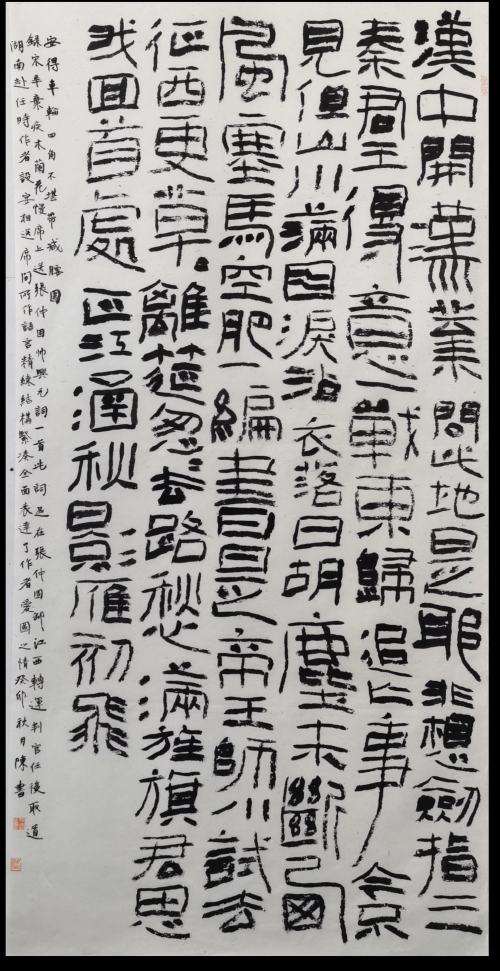 漢中開漢業問此地是耶非想劍指三
秦君王得意一戰東歸追亡事今
見但山川滿目淚沾衣落日胡塵未斷西
風塞馬空肥一編書是帝王師小試去
征西更草離筵怱去路愁滿旌旗君思
我回首處正江涵秋影雁初飛
安得車輪四角不堪帶減腰圍
錄宋辛棄疾木蘭花慢席上送張仲固帥興元詞一首此詞是在張仲固卸江西轉運判官任後取道
湖南赴任時作者設宴相送席間所作語言精練結構緊湊全面表達了作者愛國之情癸卯秋月陳書